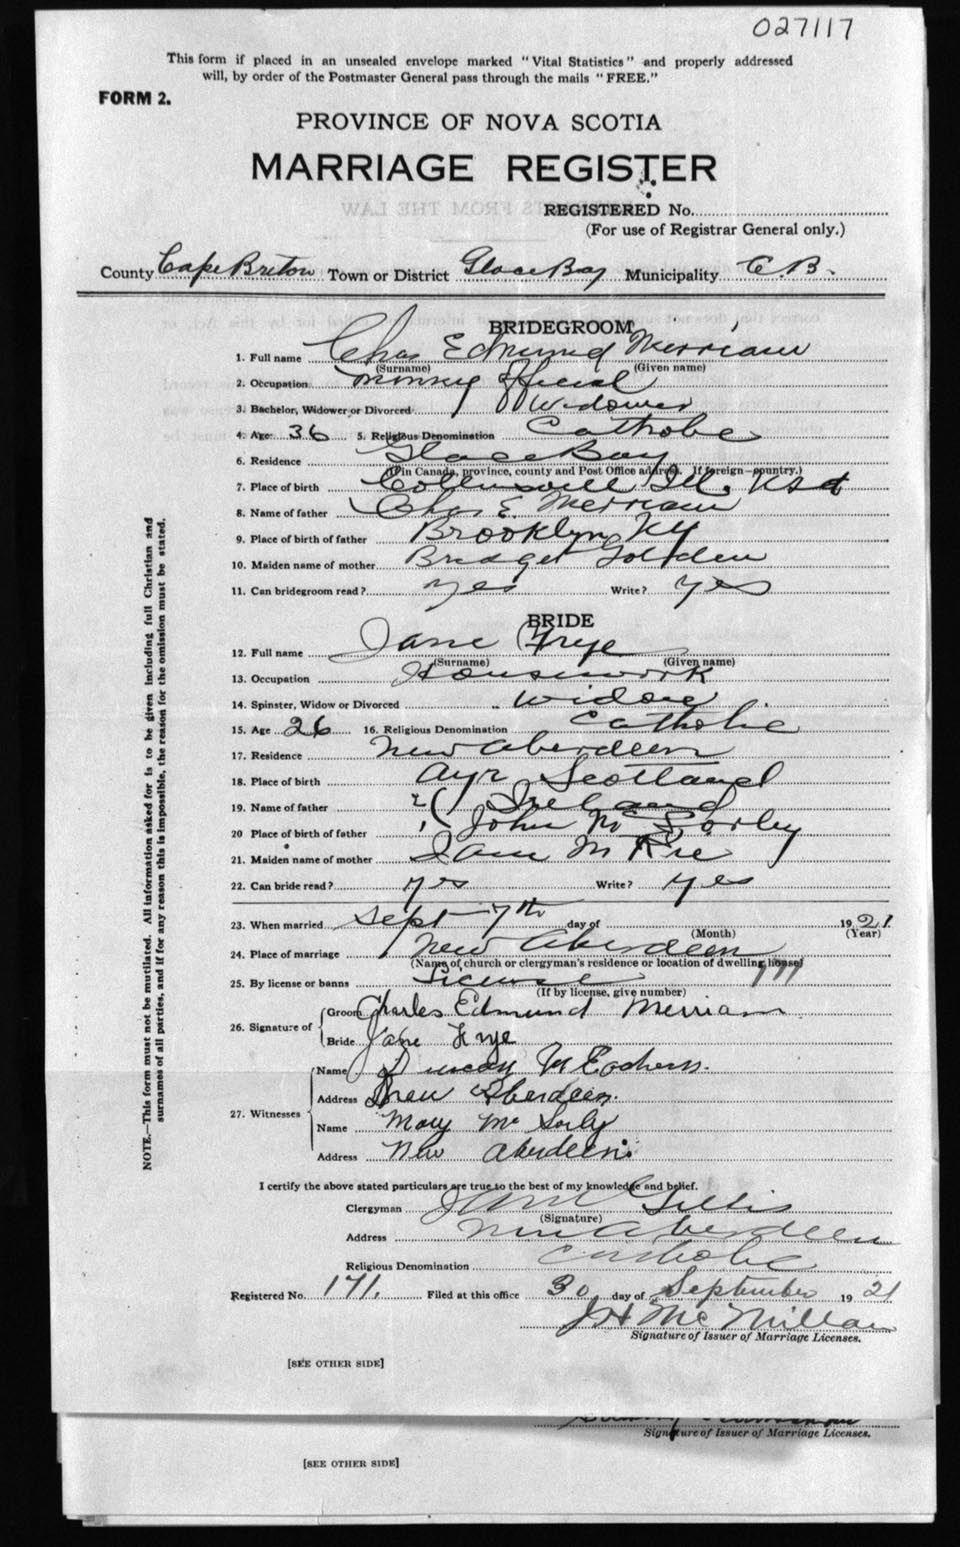 027117
This form if placed in an unsealed envelope marked "Vital Statistics" and properly addressed
will, by order of the Postmaster General pass through the mails "FREE."
FORM 2.
PROVINCE OF NOVA SCOTIA
MARRIAGE REGISTER
REGISTERED No.
(For use of Registrar General only.)
County Cape Breton Town or District Glace Bay Municipality C B.
BRIDEGROOM
1. Full name Chas Edmund Merriam
(Surname) (Given name)
2. Occupation Official
3. Bachelor, Widower or Divorced Widower
4. Age 36 5. Religious Denomination Catholic
6. Residence Glace Bay
(If in Canada, province, county and Post Office address. If foreign—country.)
7. Place of birth Collinsville Ill. USA
8. Name of father Chas E. Merriam
9. Place of birth of father Brooklyn NY
10. Maiden name of mother Bridget Golden
11. Can bridegroom read? yes Write? yes
BRIDE
12. Full name Jane Frye
(Surname) (Given name)
13. Occupation Housework
14. Spinster, Widow or Divorced Widow
15. Age 26 16. Religious Denomination Catholic
17. Residence New Aberdeen
18. Place of birth Ayr Scotland
19. Name of father 2 ( Ireland
20 Place of birth of father 1 ( John McSorley
21. Maiden name of mother
22. Can bride read? yes Write? yes
23. When married Sept 7th day of 1921
(Month) (Year)
24. Place of marriage New Aberdeen
(Name of church or clergyman's residence or location of dwelling house)
25. By license or banns License 171
(If by license, give number)
26. Signature of
Groom Charles Edmund Merriam
Bride Jane Frye
27. Witnesses
Name Duncan
Address New Aberdeen.
Name Mary Mc Sorly
Address New Aberdeen
I certify the above stated particulars are true to the best of my knowledge and belief.
Clergyman Gillis
(Signature)
Address New Aberdeen
Religious Denomination Catholic
Registered No. 171. Filed at this office 30 day of September 1921
J H McMillan
Signature of Issuer of Marriage Licenses.
[SEE OTHER SIDE]
NOTE.—This form must not be mutilated. All information asked for is to be given including full Christian and
surnames of all parties, and if for any reason this is impossible, the reason for the omission must be stated.
Signature of Issuer of Marriage Licenses.
[SEE OTHER SIDE]